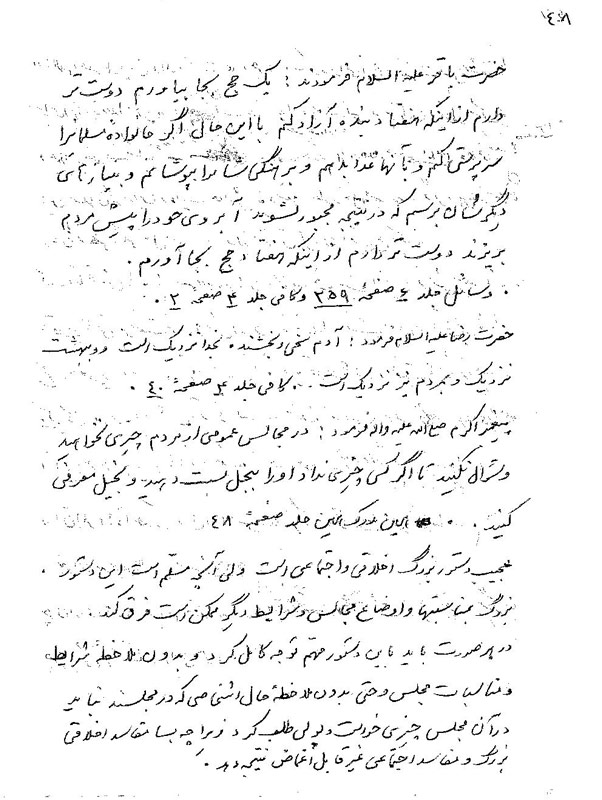 ۱۴۰۸
حضرت باقر علیه السلام فرمودند : یک حج بجا بیاورم دوست تر
دارم از اینکه هفتاد بنده آزاد کنم با این حال اگر خانواده مسلمانرا
سرپرستی کنم و بآنها غذا بدهم و برهنگی شانرا بپوشانم و بنیازهای
دیگرشان برسم که در نتیجه مجبور نشوند آبروی خود را پیش مردم
بریزند دوست تر دارم از اینکه هفتاد حج بجا آورم .
. وسائل جلد ٤ صفحهٔ ۲۵۹ وکافی جلد ۴ صفحه ۲ .
حضرت رضا علیه السلام فرمود : آدم سخی و بخشنده بخدا نزدیک است و ببهشت
نزدیک و بمردم نیز نزدیک است . . کافی جلد ۴ صفحهٔ ۴۰ .
پیغمبر اکرم صلی الله علیه واله فرمود : در مجالس عمومی از مردم چیزی نخواهید
وسئوال نکنید تا اگر کسی چیزی نداد او را ببخل نسبت دهید و بخیل معرفی
کنید . . همین مدرک همین جلد صفحهٔ ۴۸
عجیب دستور بزرگ اخلاقی و اجتماعی است ولی آنچه مسلّم است این دستور
بزرگ بمناسبتها و اوضاع مجالس و شرایط دیگر ممکن است فرق کند .
در هر صورت باید باین دستور مهم توجه کامل کرد و بدون ملاحظه شرایط
و مناسبات مجلس و حتی بدون ملاحظهٔ حال اشخاصی که در مجلسند نباید
در آن مجلس چیزی خواست و پولی طلب کرد زیرا چه بسا مفاسد اخلاقی
بزرگ و مفاسد اجتماعی غیر قابل اغماض نتیجه دهد .